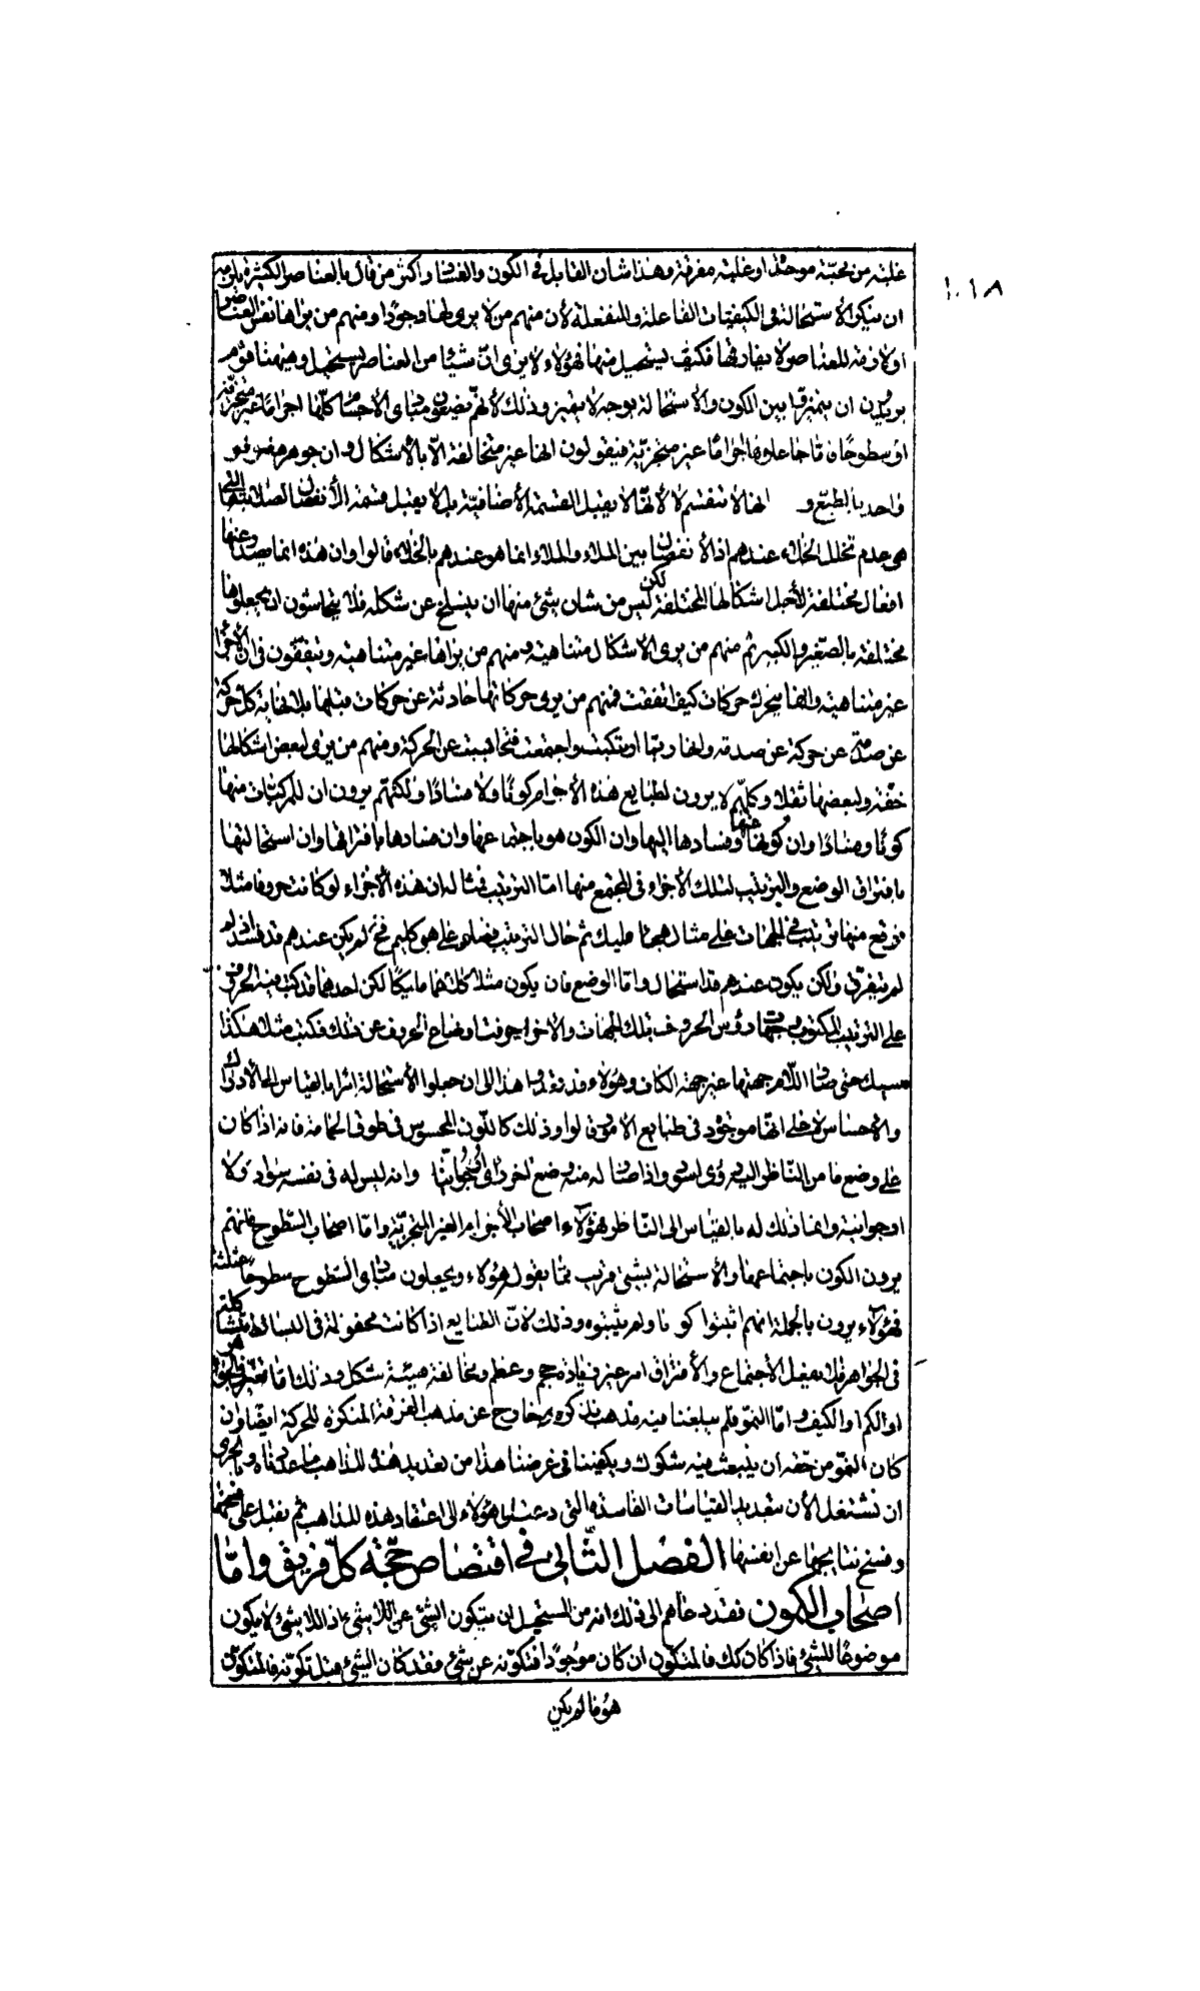 غلبته من محبّة موحّدة او غلبة مفرقة وهذا شان القايل في الكون والفساد واكثر من قال بالعناصر الكثيرة يلزمه
ان ينكر الأستحالة فى الكيفيات الفاعلة والمنفعلة لأن منهم من لا يرى لها وجودًا ومنهم من يراها نفس العناصر
اولازمة للعناصر لا يفارقها فكيف يستحيل منها فهؤلاء لا يرى انّ شيئا من العناصر يستحيل وههنا قوم
يريدون ان يفرقوا بين الكون والأستحالة بوجه لا يتميز وذلك لأنهم يضعون مبادى الأجسام كلّها اجراما غير متجزية
او سطوحًا فاما جاعلوها اجرامًا غير متجزية فيقولون انها غير متخالفة الّا بالأشكال وان جوهرها جوهر
واحد بالطبع و انها لا تنقسم لا لأنّها لا يقبل القسمة الأضافية بل لا يقبل قسمة الأنفصال لصلابتها التى
هى عدم تخلل الخلاء عندهم اذ الأنفصال بين الملاء والملاء انما هو عندهم بالخلاء قالوا وان هذه انما يصدر عنها
افعال مختلفة لأجل اشكالها المختلفة لكن ليس من شان شئ منها ان ينسلخ عن شكله فلا يتحاشون ان يجعلوها
مختلفة بالصغر والكبر ثم منهم من يرى الاشكال متناهية ومنهم من يراها غير متناهية ويتفقون فى ان الأجزاء
غير متناهية وانها يتحرك حركات كيف اتفقت فمنهم من يرى حركاتها حادثة عن حركات قبلها بلا نهاية كل حركة
عن صدمة عن حركة عن صدمة وانها ربّما ارتكبت واجتمعت فتحابست عن الحركة ومنهم من يرى لبعض اشكالها
خفّة ولبعضها ثقلا وكلّهم لا يرون لطبايع هذه الأجرام كونًا ولا فسادًا ولكنّهم يرون ان للمركّبات منها
كونًا وفسادًا وان كونها عنها وفسادها اليها وان الكون هو باجتماعها وان فسادها بافتراقها وان استحالتها
بافتراق الوضع والترتيب لتلك الأجزاء فى المجتمع منها امّا الترتيب فمثاله ان هذه الأجزاء لو كانت حروفا مثلا
فوقع منها ترتيب فى الجهات على مثال هجاء مليك ثم حال الترتيب فصار على هجو كليم فح لم يكن عندهم قد فسد اذ لم
لم يتفرق ولكن يكون عندهم قد استحال وامّا الوضع فان يكون مثلا كلاهما مليكًا لكن احدهما قد كتب فيه الحروف
على الترتيب المكتوب وجهات رؤس الحروف تلك الجهات والأخرى حرفت اوضاع الحروف عن ذلك فكتب مثلا هكذا
حتى صار اللّام جهتها غير جهة الكاف وهؤلاء قد تعدوا هذا الى ان جعلوا الأستحالة امرا بالقياس الى الأدراك
والأحساس لا على انّها موجودة فى طبايع الأمور قالوا وذلك كاللون المحسوس فى طوق الحمامة فانه اذا كان
على وضع ما من النّاظر اليه رؤى اسود واذا صار له منه وضع اخر رؤى ارجوانيّا وانه ليس له فى نفسه سواد ولا
ارجوانية وانما ذلك له بالقياس الى النّاظر فهؤلاء اصحاب الأجرام الغير المتجزّية وامّا اصحاب السّطوح فانّهم
يرون الكون باجتماعها والأستحالة بشئ قريب ممّا يقول هؤلاء ويجعلون مبادى السّطوح سطوحًا مثلثة
فهؤلاء يرون بالجملة انهم اثبتوا كونا ولم يثبتوه وذلك لانّ الطبايع اذا كانت محفوظة فى البسايط متشاكلة
فى الجواهر فلا يفعل الأجتماع والأفتراق امرا غير زيادة حجم وعظم ومخالفة هيئة شكل وذلك اما تغير فى الجوهر
او الكم او الكيف وامّا النموّ فلم يبلغنا فيه مذهب نذكره خارج عن مذهب الفرقة المنكرة للحركة ايضا وان
كان النموّ من حقه ان ينبعث فيه شكوك ويكفيننا فى غرضنا هذا من تعديد هذه المذاهب ما عددناه وبالحرى
ان نشتغل الأن بتعديد القياسات الفاسدة التى دعت هؤلاء الى اعتقاد هذه المذاهب ثم نقبل على فسخها
وفسخ نتايجها عن انفسها الفصل الثّانى فى اقتصاص حجّة كلّ فريق وامّا
اصحاب الكمون فقد دعاهم الى ذلك انه من المستحيل ان يتكون الشئ عن اللاشئ اذ اللاشئ لا يكون
موضوعًا للشئ فاذا كان كك فالمتكون ان كان موجودًا فتكونه عن شئ فقد كان الشئ قبل تكونه فالمتكوّن
هو ما لم يكن
١٠١٨